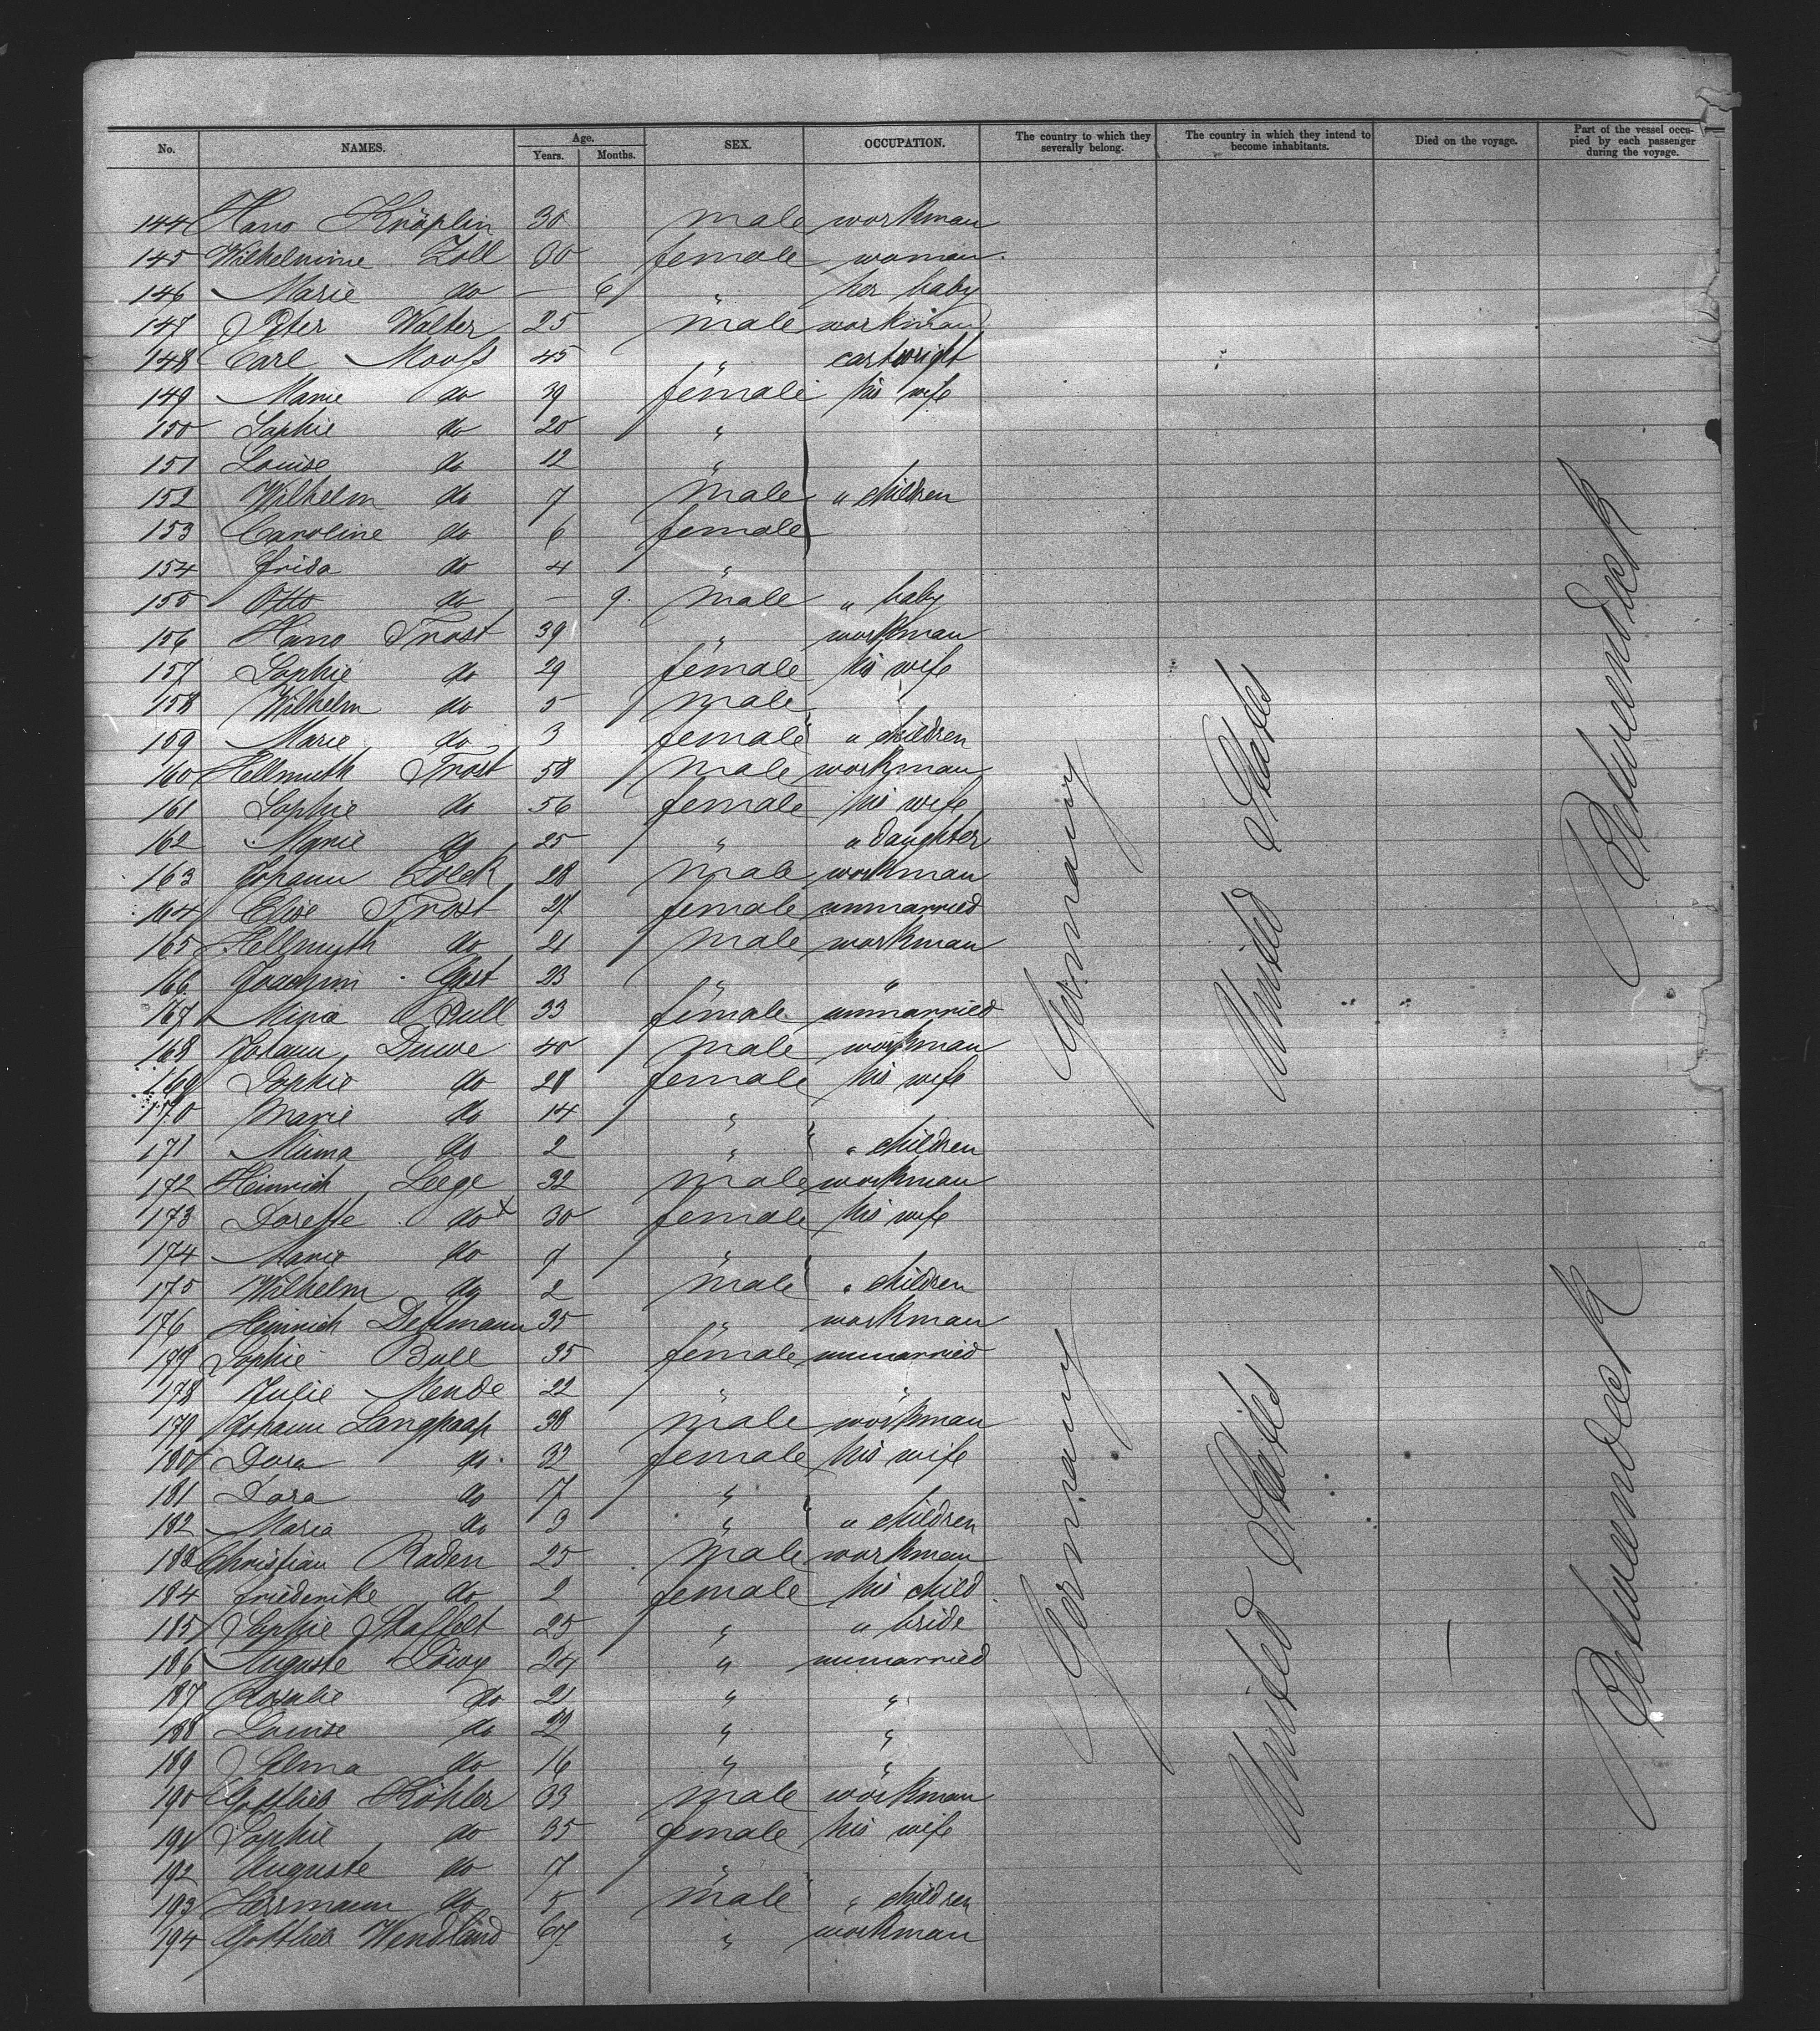 No. NAMES. Age. Years. Months. SEX. OCCUPATION. The country to which they severally belong. The country in which they intend to become inhabitants. Died on the voyage. Part of the vessel occupied by each passenger during the voyage.
144 Hans Knöplin 30 male workman
145 Wilhelmine Zoll 30 female woman
146 Marie do — 6 " her baby
147 Peter Walter 25 male workman
148 Carl Mooß 45 " cartwright
149 Marie do 39 female his wife
150 Sophie do 20 "
151 Louise do 12 "
152 Wilhelm do 7 male " children
153 Caroline do 6 female
154 Frida do 4 "
155 Otto do — 9 male " baby
156 Hans Trost 39 " workman
157 Sophie do 29 female his wife
158 Wilhelm do 5 male
159 Marie do 3 female " children
160 Hellmuth Trost 58 male workman
161 Sophie do 56 female his wife
162 Marie do 25 " " daughter
163 Johann Zolck 28 male workman
164 Elise Trost 27 female unmarried
165 Hellmuth do 21 male workman
166 Joachim Gast 23 " "
167 Mina Bull 33 female unmarried
168 Johann Duwe 40 male workman
169 Sophie do 28 female his wife
170 Marie do 14 "
171 Minna do 2 " " children
172 Heinrich Leege 32 male workman
173 Dorette do x 30 female his wife
174 Marie do 7 "
175 Wilhelm do 2 male " children
176 Heinrich Dettmann 35 " workman
177 Sophie Bull 35 female unmarried
178 Julie Mende 22 " "
179 Johann Langpaap 38 male workman
180 Dora do 32 female his wife
181 Dora do 7 "
182 Maria do 3 " " children
183 Christian Raden 25 male workman
184 Friederike do 2 female his child
185 Sophie Staffelt 25 " " bride
186 Auguste Löwy 24 " unmarried
187 Rosalie do 21 " "
188 Louise do 22 " "
189 Selma do 16 " "
190 Gottlieb Köhler 33 male workman
191 Sophie do 35 female his wife
192 Auguste do 7 "
193 Herrmann do 5 male " children
194 Gottlieb Wendland 67 " workman
Germany
United States
Betweendeck
Germany
United States
—
Betweendeck